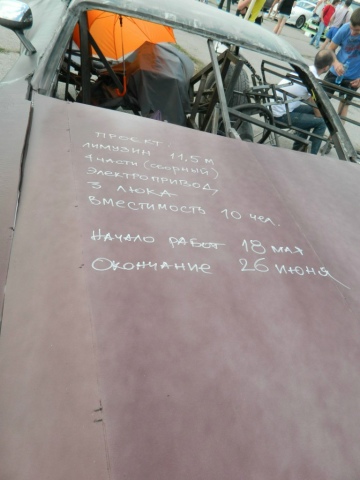 ПРОЕКТ
ЛИМУЗИН 11,5 м
4 части (сборный)
ЭЛЕКТРОПРИВОД,
3 ЛЮКА
ВМЕСТИМОСТЬ 10 чел.
НАЧАЛО РАБОТ 18 МАЯ
ОКОНЧАНИЕ 26 ИЮНЯ